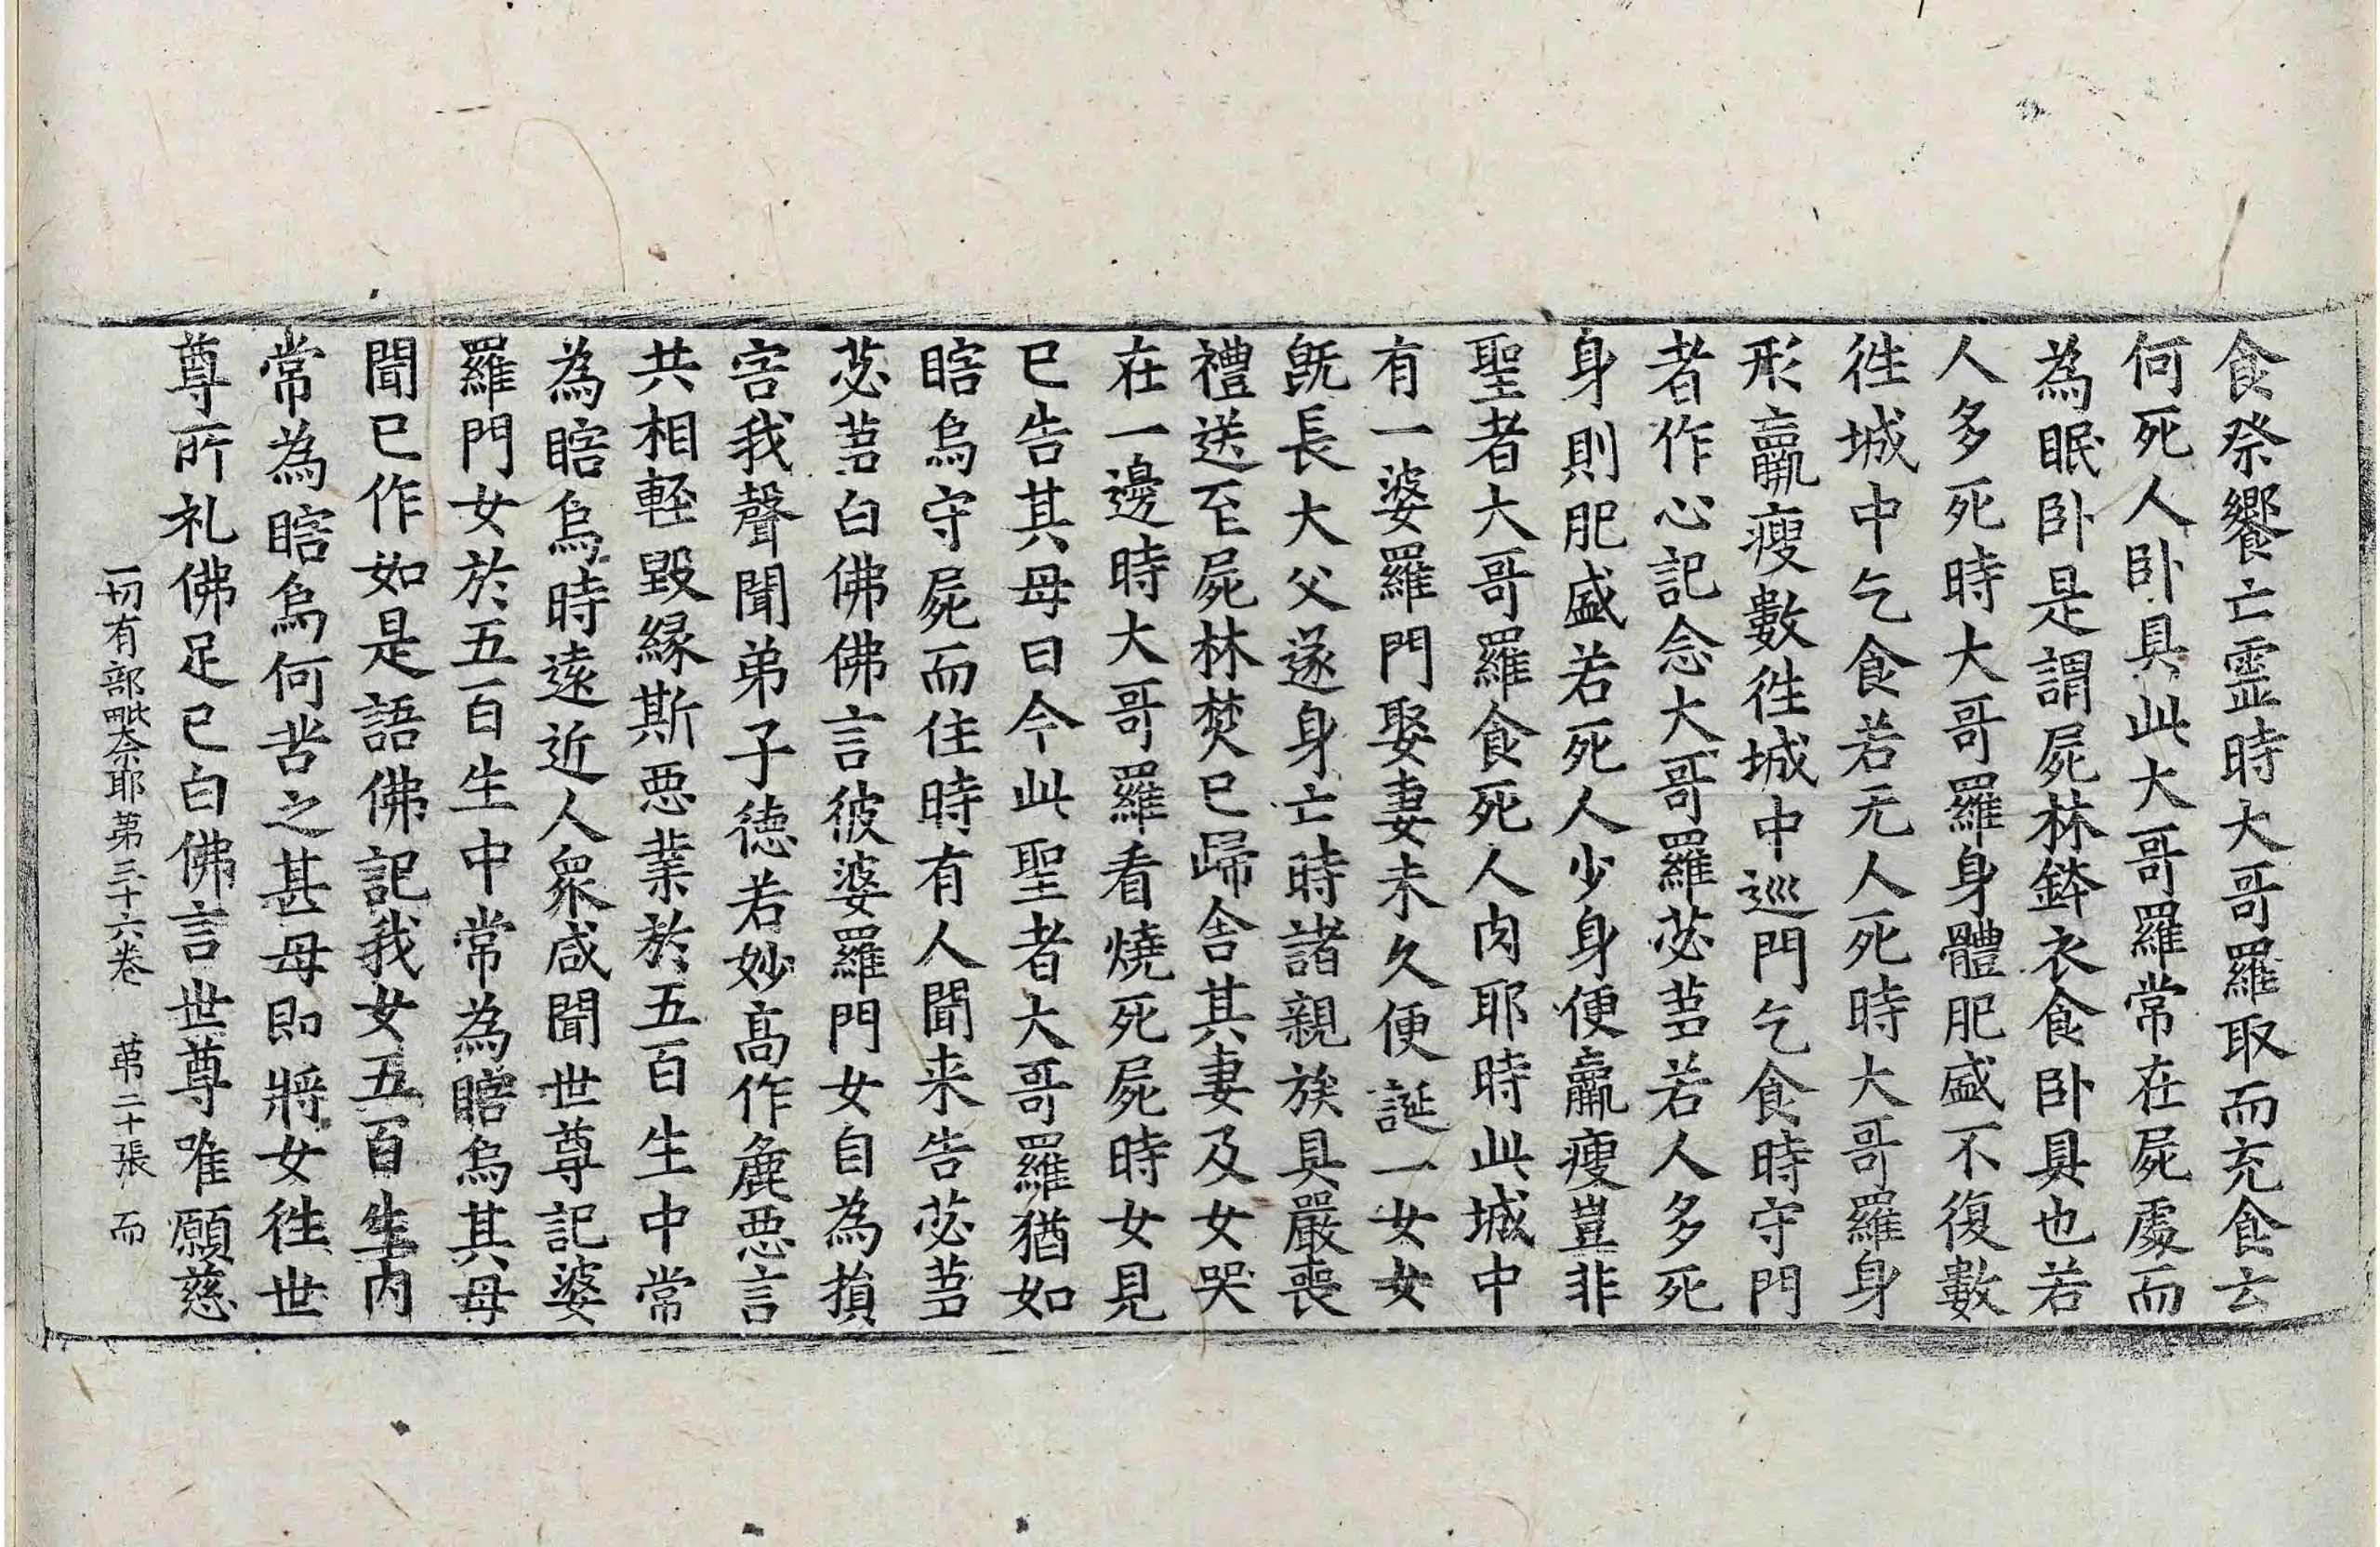 食祭饗亡霊時大哥羅取而充食云
何死人卧具此大哥羅常在屍處而
為眠卧是謂屍林鉢衣食卧具也若
人多死時大哥羅身體肥盛不復數
徃城中乞食若无人死時大哥羅身
形羸瘦數徃城中巡門乞食時守門
者作心記念大哥羅苾蒭若人多死
身則肥盛若死人少身便羸瘦豈非
聖者大哥羅食死人肉耶時此城中
有一婆羅門娶妻未久便誕一女女
旣長大父遂身亡時諸親族具嚴喪
禮送至屍林焚已歸舍其妻及女哭
在一邊時大哥羅看燒死屍時女見
已告其母曰今此聖者大哥羅猶如
瞎烏守屍而住時有人聞来告苾蒭
苾蒭白佛佛言彼婆羅門女自為損
害我聲聞弟子德若妙高作麁惡言
共相輕毀緣斯惡業於五百生中常
為瞎烏時遠近人衆咸聞世尊記婆
羅門女於五百生中常為瞎烏其母
聞已作如是語佛記我女五百生内
常為瞎烏何苦之甚母即將女徃世
尊所礼佛足已白佛言世尊唯願慈
一切有部毗奈耶第三十六卷 第二十張 而